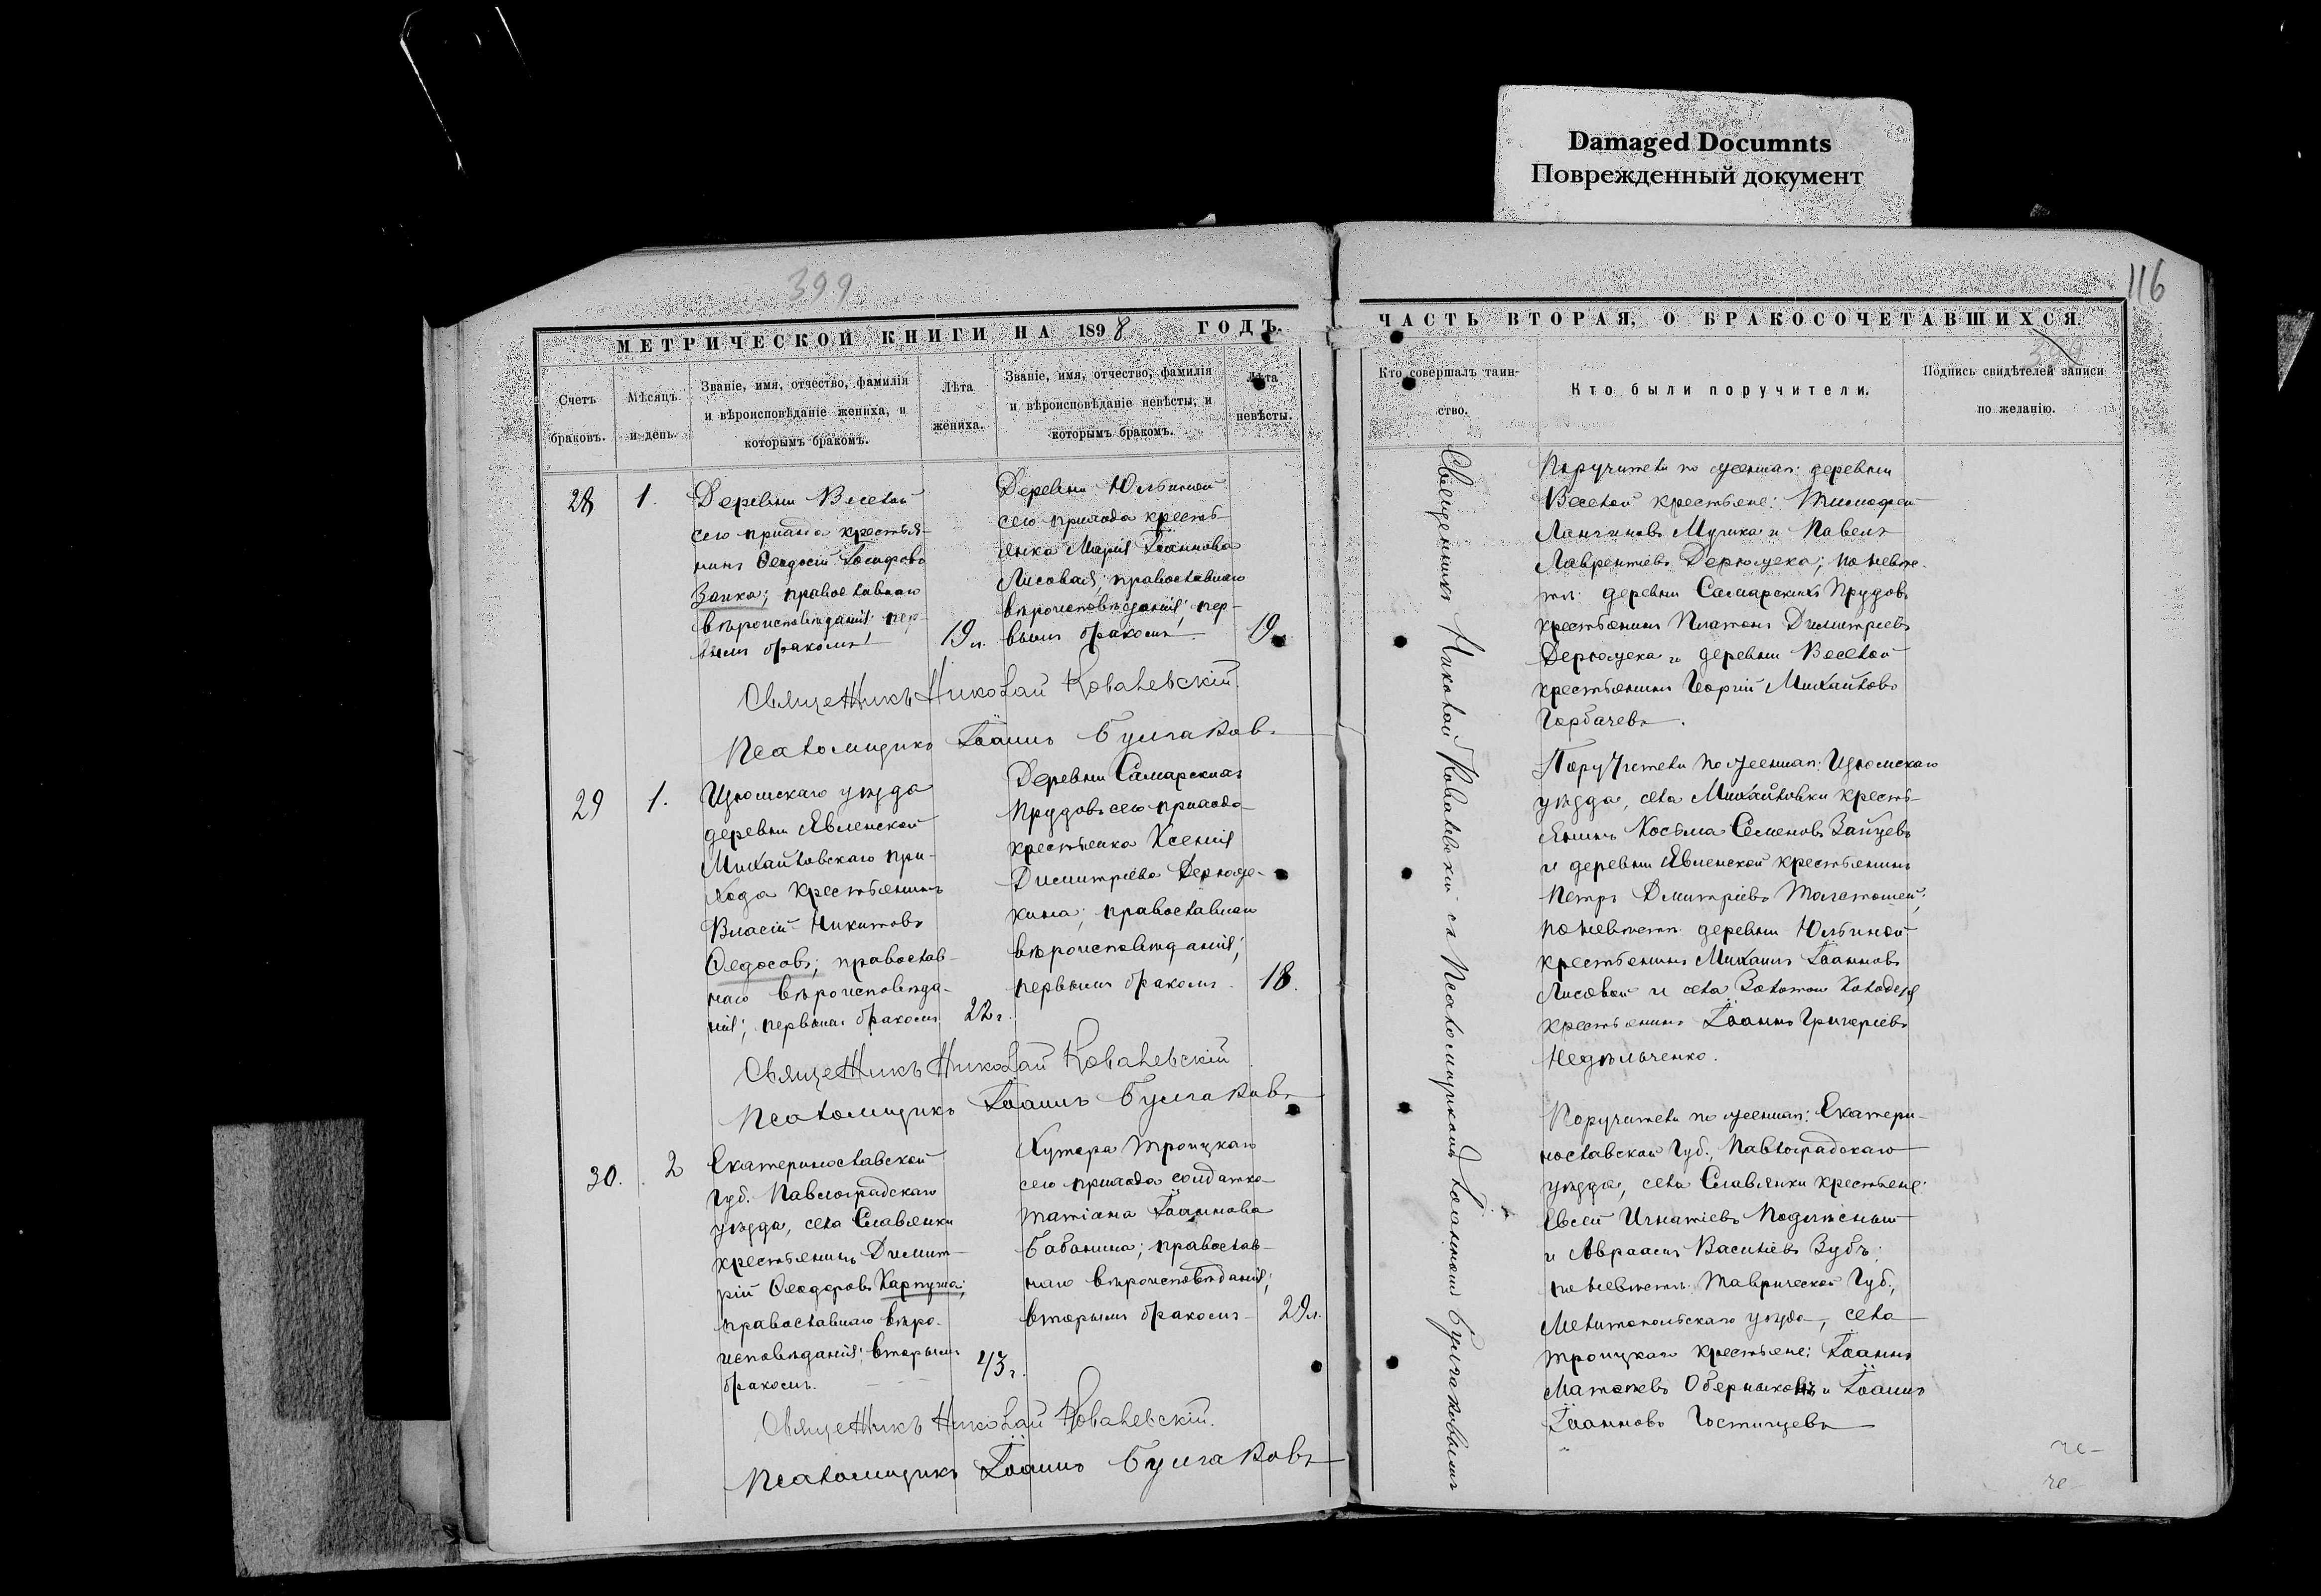 Damaged Documnts
Поврежденный документ
399
116
МЕТРИЧЕСКОЙ КНИГИ НА 1898 ГОДЪ.
Счетъ
браковъ.
Мѣсяцъ
и день.
Званіе, имя, отчество, фамилія
и вѣроисповѣданіе жениха, и
которымъ бракомъ.
Лѣта
жениха.
Званіе, имя, отчество, фамилія
и вѣроисповѣданіе невѣсты, и
которымъ бракомъ.
Лѣта
невѣсты.
28
1.
Деревни Веселой
сего прихода крестья-
нинъ Ѳеодосій Іосифовъ
Заика; православнаго
вѣроисповѣданія; пер-
вымъ бракомъ
19 л.
Деревни Юльиной
сего прихода кресть-
янка Марія Іоаннова
Лисовая; православнаго
вѣроисповѣданія; пер-
вымъ бракомъ.
19
Священникъ Николай Ковалевскій.
Псаломщикъ Іоаннъ Булгаковъ
29
1.
Изюмскаго уѣзда
деревни Явленской
Михайловскаго при-
хода крестьянинъ
Власій Никитовъ
Ѳедосовъ; православ-
наго вѣроисповѣда-
нія; первымъ бракомъ
22 г.
Деревни Самарскихъ
Прудовъ сего прихода
крестьянка Ксенія
Димитріева Дерюже-
кина; православнаго
вѣроисповѣданія;
первымъ бракомъ.
18.
Священникъ Николай Ковалевскій
Псаломщикъ Іоаннъ Булгаковъ
30.
2
Екатеринославской
Губ. Павлоградскаго
уѣзда, села Славянки
крестьянинъ Димит-
рій Ѳеодоровъ Карпуша;
православнаго вѣро-
исповѣданія; вторымъ
бракомъ.
43 г.
Хутора Троицкаго
сего прихода солдатка
Татіана Іоаннова
Бабанина; православ-
наго вѣроисповѣданія;
вторымъ бракомъ
29 л.
Священникъ Николай Ковалевскій.
Псаломщикъ Іоаннъ Булгаковъ
ЧАСТЬ ВТОРАЯ, О БРАКОСОЧЕТАВШИХСЯ.
Кто совершалъ таин-
ство.
Кто были поручители.
Подпись свидѣтелей записи
по желанію.
Священникъ Николай Ковалевскій съ Псаломщикомъ Іоанномъ Булгаковымъ
Поручители по женихѣ: деревни
Веселой крестьяне: Тимофей
Мучика и Павелъ
Лаврентіевъ Дерюжека; по невѣ-
стѣ: деревни Самарскихъ Прудовъ
крестьянинъ Платонъ Димитріевъ
Дерюжека и деревни Веселой
крестьянинъ Георгій Михайловъ
Горбачевъ.
Поручители по женихѣ: Изюмскаго
уѣзда, села Михайловки кресть-
янинъ Косьма Семеновъ Зайцевъ
и деревни Явленской крестьянинъ
Петръ Дмитріевъ
по невѣстѣ: деревни Юльиной
крестьянинъ Михаилъ Іоанновъ
Лисовой и села Золотой Колодезь
крестьянинъ Іоаннъ Григоріевъ
Недѣльченко.
Поручители по женихѣ: Екатери-
нославской Губ., Павлоградскаго
уѣзда, села Славянки крестьяне:
Евсей Игнатіевъ
и Авраамъ Василіевъ Зубъ;
по невѣстѣ: Таврической Губ.,
Мелитопольскаго уѣзда, села
Троицкаго крестьяне: Іоаннъ
Оберныковъ и Іоаннъ
Іоанновъ Гостищевъ